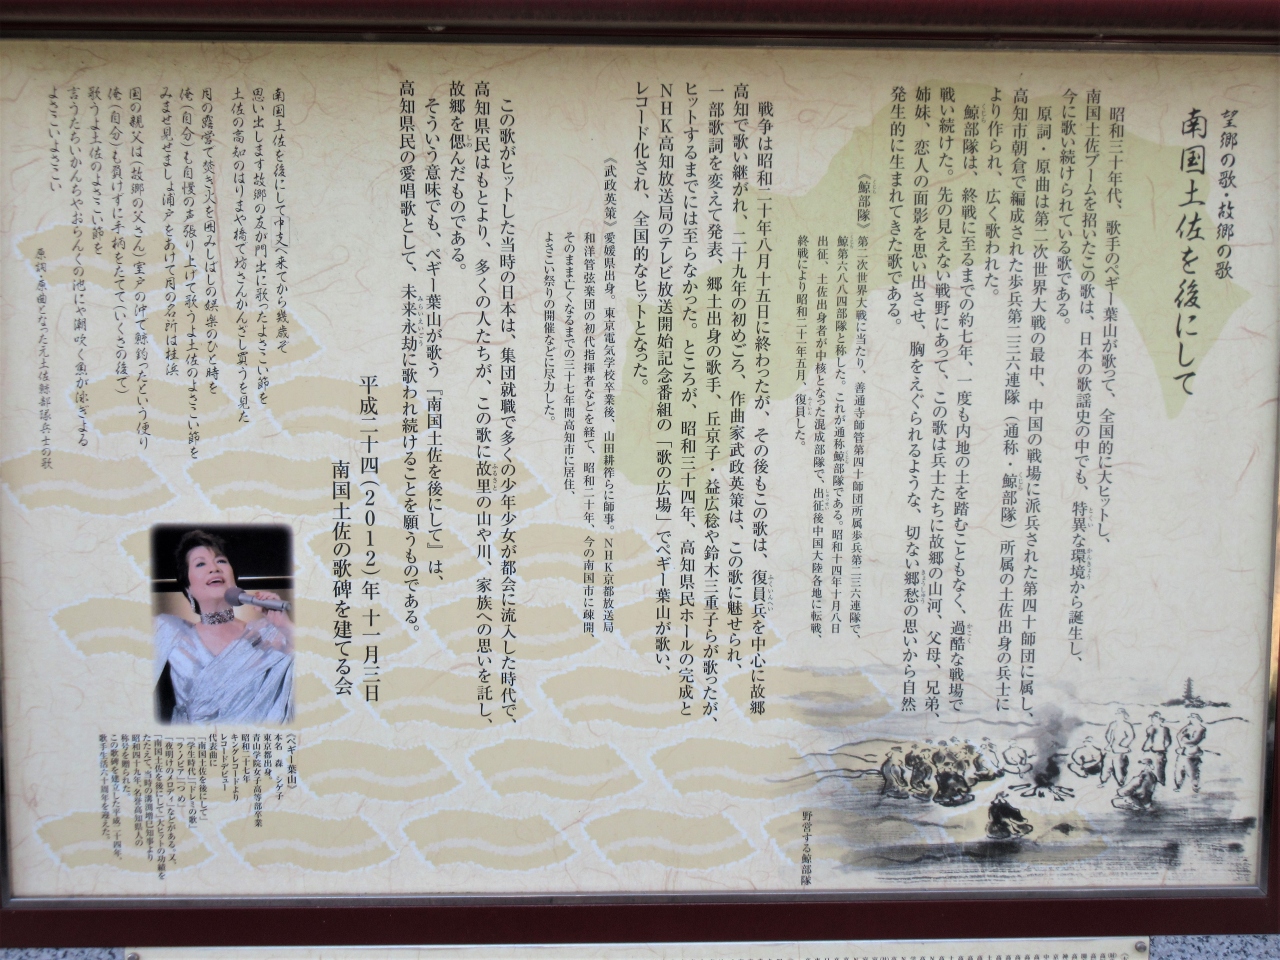 望郷の歌・故郷の歌
南国土佐を後にして
昭和三十年代、歌手のペギー葉山が歌って、全国的に大ヒットし、
南国土佐ブームを招いたこの歌は、日本の歌謡史の中でも、特異な環境から誕生し、
今に歌い続けられている歌である。
原詞・原曲は第二次世界大戦の最中、中国の戦場に派兵された第四十師団に属し、
高知市朝倉で編成された歩兵第二三六連隊(通称・鯨部隊)所属の土佐出身の兵士に
より作られ、広く歌われた。
鯨部隊は、終戦に至るまでの約七年、一度も内地の土を踏むこともなく、過酷な戦場で
戦い続けた。先の見えない戦野にあって、この歌は兵士たちに故郷の山河、父母、兄弟、
姉妹、恋人の面影を思い出させ、胸をえぐられるような、切ない郷愁の思いから自然
発生的に生まれてきた歌である。
《鯨部隊》第二次世界大戦に当たり、善通寺師管第四十師団所属歩兵第二三六連隊で、
鯨第六八八四部隊と称した。これが通称鯨部隊である。昭和十四年十月八日
出征、土佐出身者が中核となった混成部隊で、出征後中国大陸各地に転戦、
終戦により昭和二十一年五月、復員した。
戦争は昭和二十年八月十五日に終わったが、その後もこの歌は、復員兵を中心に故郷
高知で歌い継がれ、二十九年の初めごろ、作曲家武政英策は、この歌に魅せられ、
一部歌詞を変えて発表、郷土出身の歌手、丘京子・益広稔や鈴木三重子らが歌ったが、
ヒットするまでには至らなかった。ところが、昭和三十四年、高知県民ホールの完成と
NHK高知放送局のテレビ放送開始記念番組の「歌の広場」でペギー葉山が歌い、
レコード化され、全国的なヒットとなった。
《武政英策》愛媛県出身。東京電気学校卒業後、山田耕筰らに師事。NHK京都放送局
和洋管弦楽団の初代指揮者などを経て、昭和二十年、今の南国市に疎開、
そのまま亡くなるまでの三十七年間高知市に居住、
よさこい祭りの開催などに尽力した。
この歌がヒットした当時の日本は、集団就職で多くの少年少女が都会に流入した時代で、
高知県民はもとより、多くの人たちが、この歌に故里の山や川、家族への思いを託し、
故郷を偲んだものである。
そういう意味でも、ペギー葉山が歌う『南国土佐を後にして』は、
高知県民の愛唱歌として、未来永劫に歌われ続けることを願うものである。
平成二十四(2012)年 十一月三日
南国土佐の歌碑を建てる会
南国土佐を後にして中支へ来てから幾歳ぞ
思い出します故郷の友が門出に歌ったよさこい節を
土佐の高知のはりまや橋で坊さんかんざし買うを見た
月の露営で焚き火を囲みしばしの娯楽のひと時を
俺(自分)も自慢の声張り上げて歌うよ土佐のよさこい節を
みませ見せましょ浦戸をあけて月の名所は桂浜
国の親父は(故郷の父さん)室戸の沖で鯨釣ったという便り
俺(自分)も負けずに手柄をたてて(いくさの後で)
歌うよ土佐のよさこい節を
言うたちいかんちやおらんくの池にゃ潮吹く魚が泳ぎよる
よさこいよさこい
原詞・原曲となった元土佐鯨部隊兵士の歌
《ペギー葉山》
本名 森 シゲ子
東京都出身。
青山学院女子高等部卒業
昭和二十七年
キングレコードより
レコードデビュー
代表曲に
「南国土佐を後にして」
「学生時代」「ドレミの歌」
「ラ・ノビア」「つめ」
「夜明けのメロディ」などがある。又、
「南国土佐を後にして」大ヒットの功績を
たたえて、当時の溝渕増巳知事より
昭和四十九年、名誉高知県人の
称号を贈られた。
この歌碑を建立した平成二十四年、
歌手生活六十周年を迎えた。
野営する鯨部隊